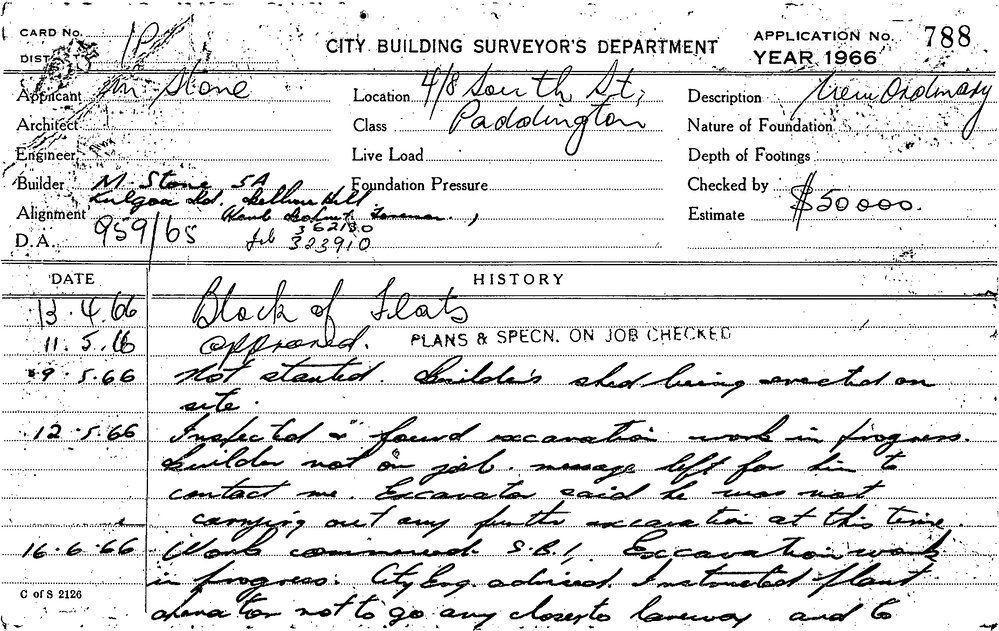 CARD No.
DIST
CITY BUILDING SURVEYOR'S DEPARTMENT
APPLICATION No. 788
YEAR 1966
Applicant M. Stone
Location 4/8 South St,
Description New Ordinary
Architect
Class Paddington
Nature of Foundation
Engineer
Live Load
Depth of Footings
Builder M. Stone
Foundation Pressure
Checked by
Alignment
Estimate $50000.
D.A. 959/65
362130
323910
DATE
HISTORY
13.4.66 Block of Flats
11.5.66 approved. PLANS & SPECN. ON JOB CHECKED
9.5.66 Not started. Builder's shed being erected on
site.
12.5.66 Inspected & found excavation work in progress.
Builder not on job. message left for him to
contact me. Excavator said he was not
carrying out any further excavation at this time.
16.6.66 Work commenced S.B.1. Excavation work
in progress. City Eng. advised. Instructed plant
operator not to go any closer to laneway and to
C of S 2126